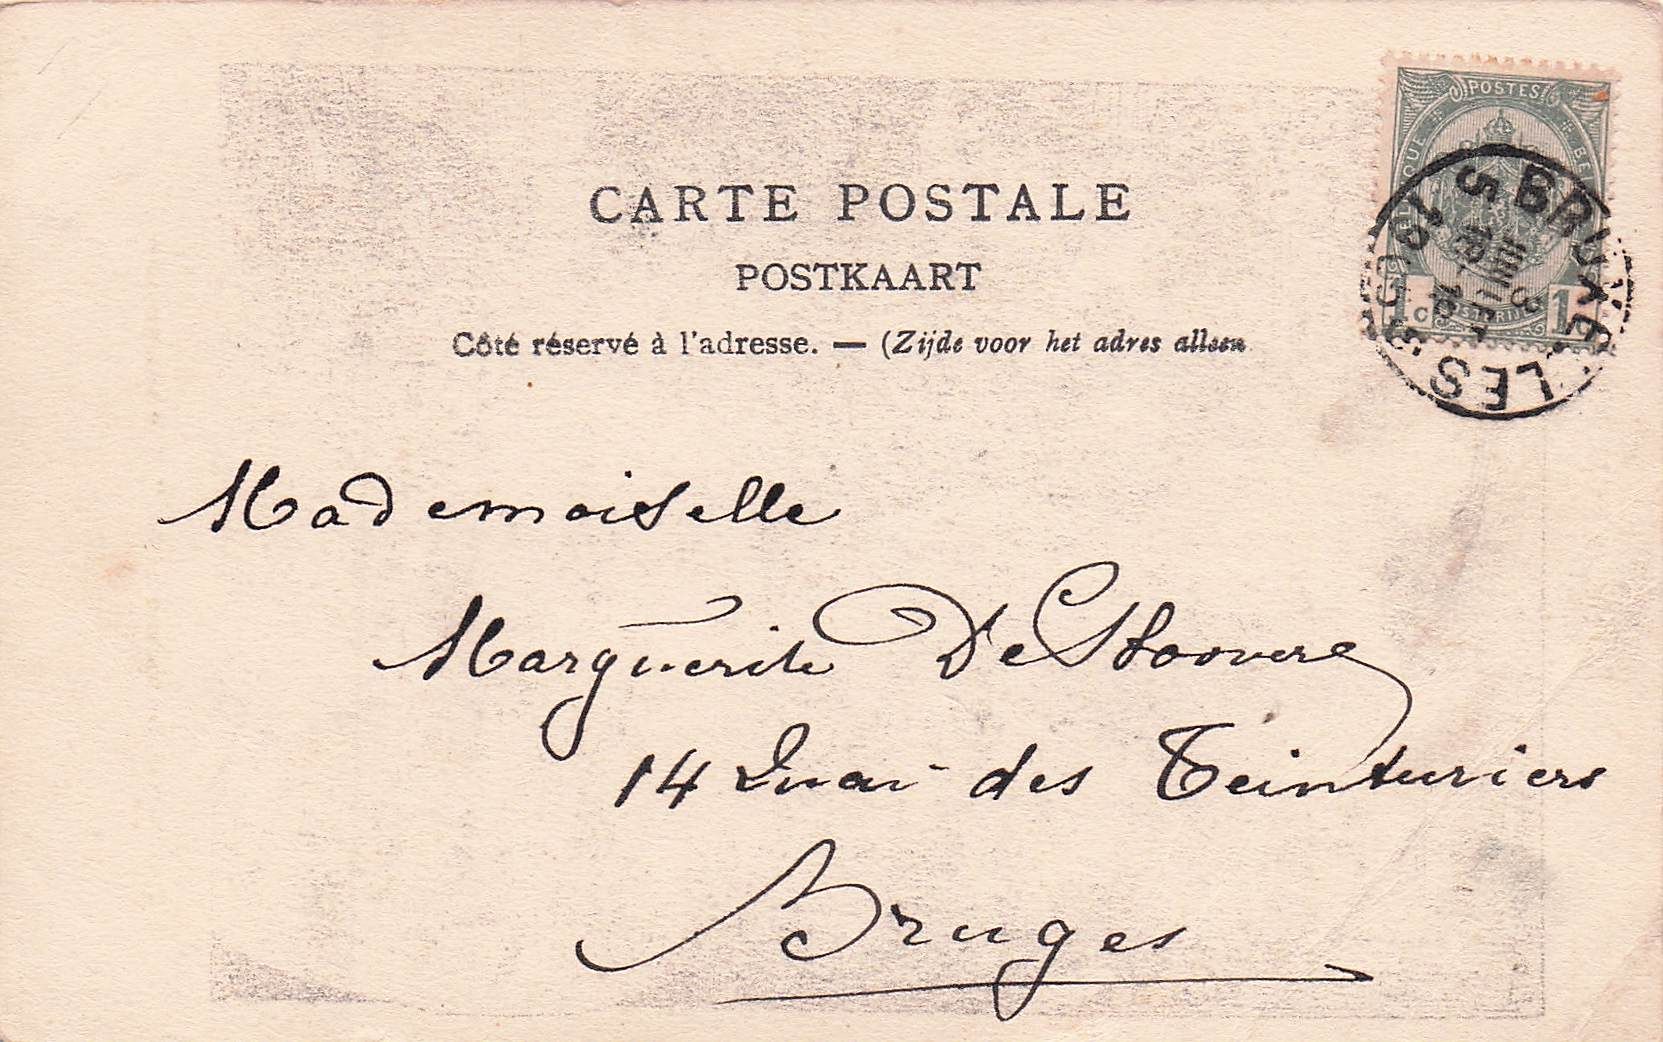 POSTES
CARTE POSTALE
POSTKAART
Côté réservé à l'adresse. — (Zijde voor het adres alleen
BRUXELLES
1903
5
1 C 1
Mademoiselle
Marguerite De Stoovere
14 Quai des Teinturiers
Bruges